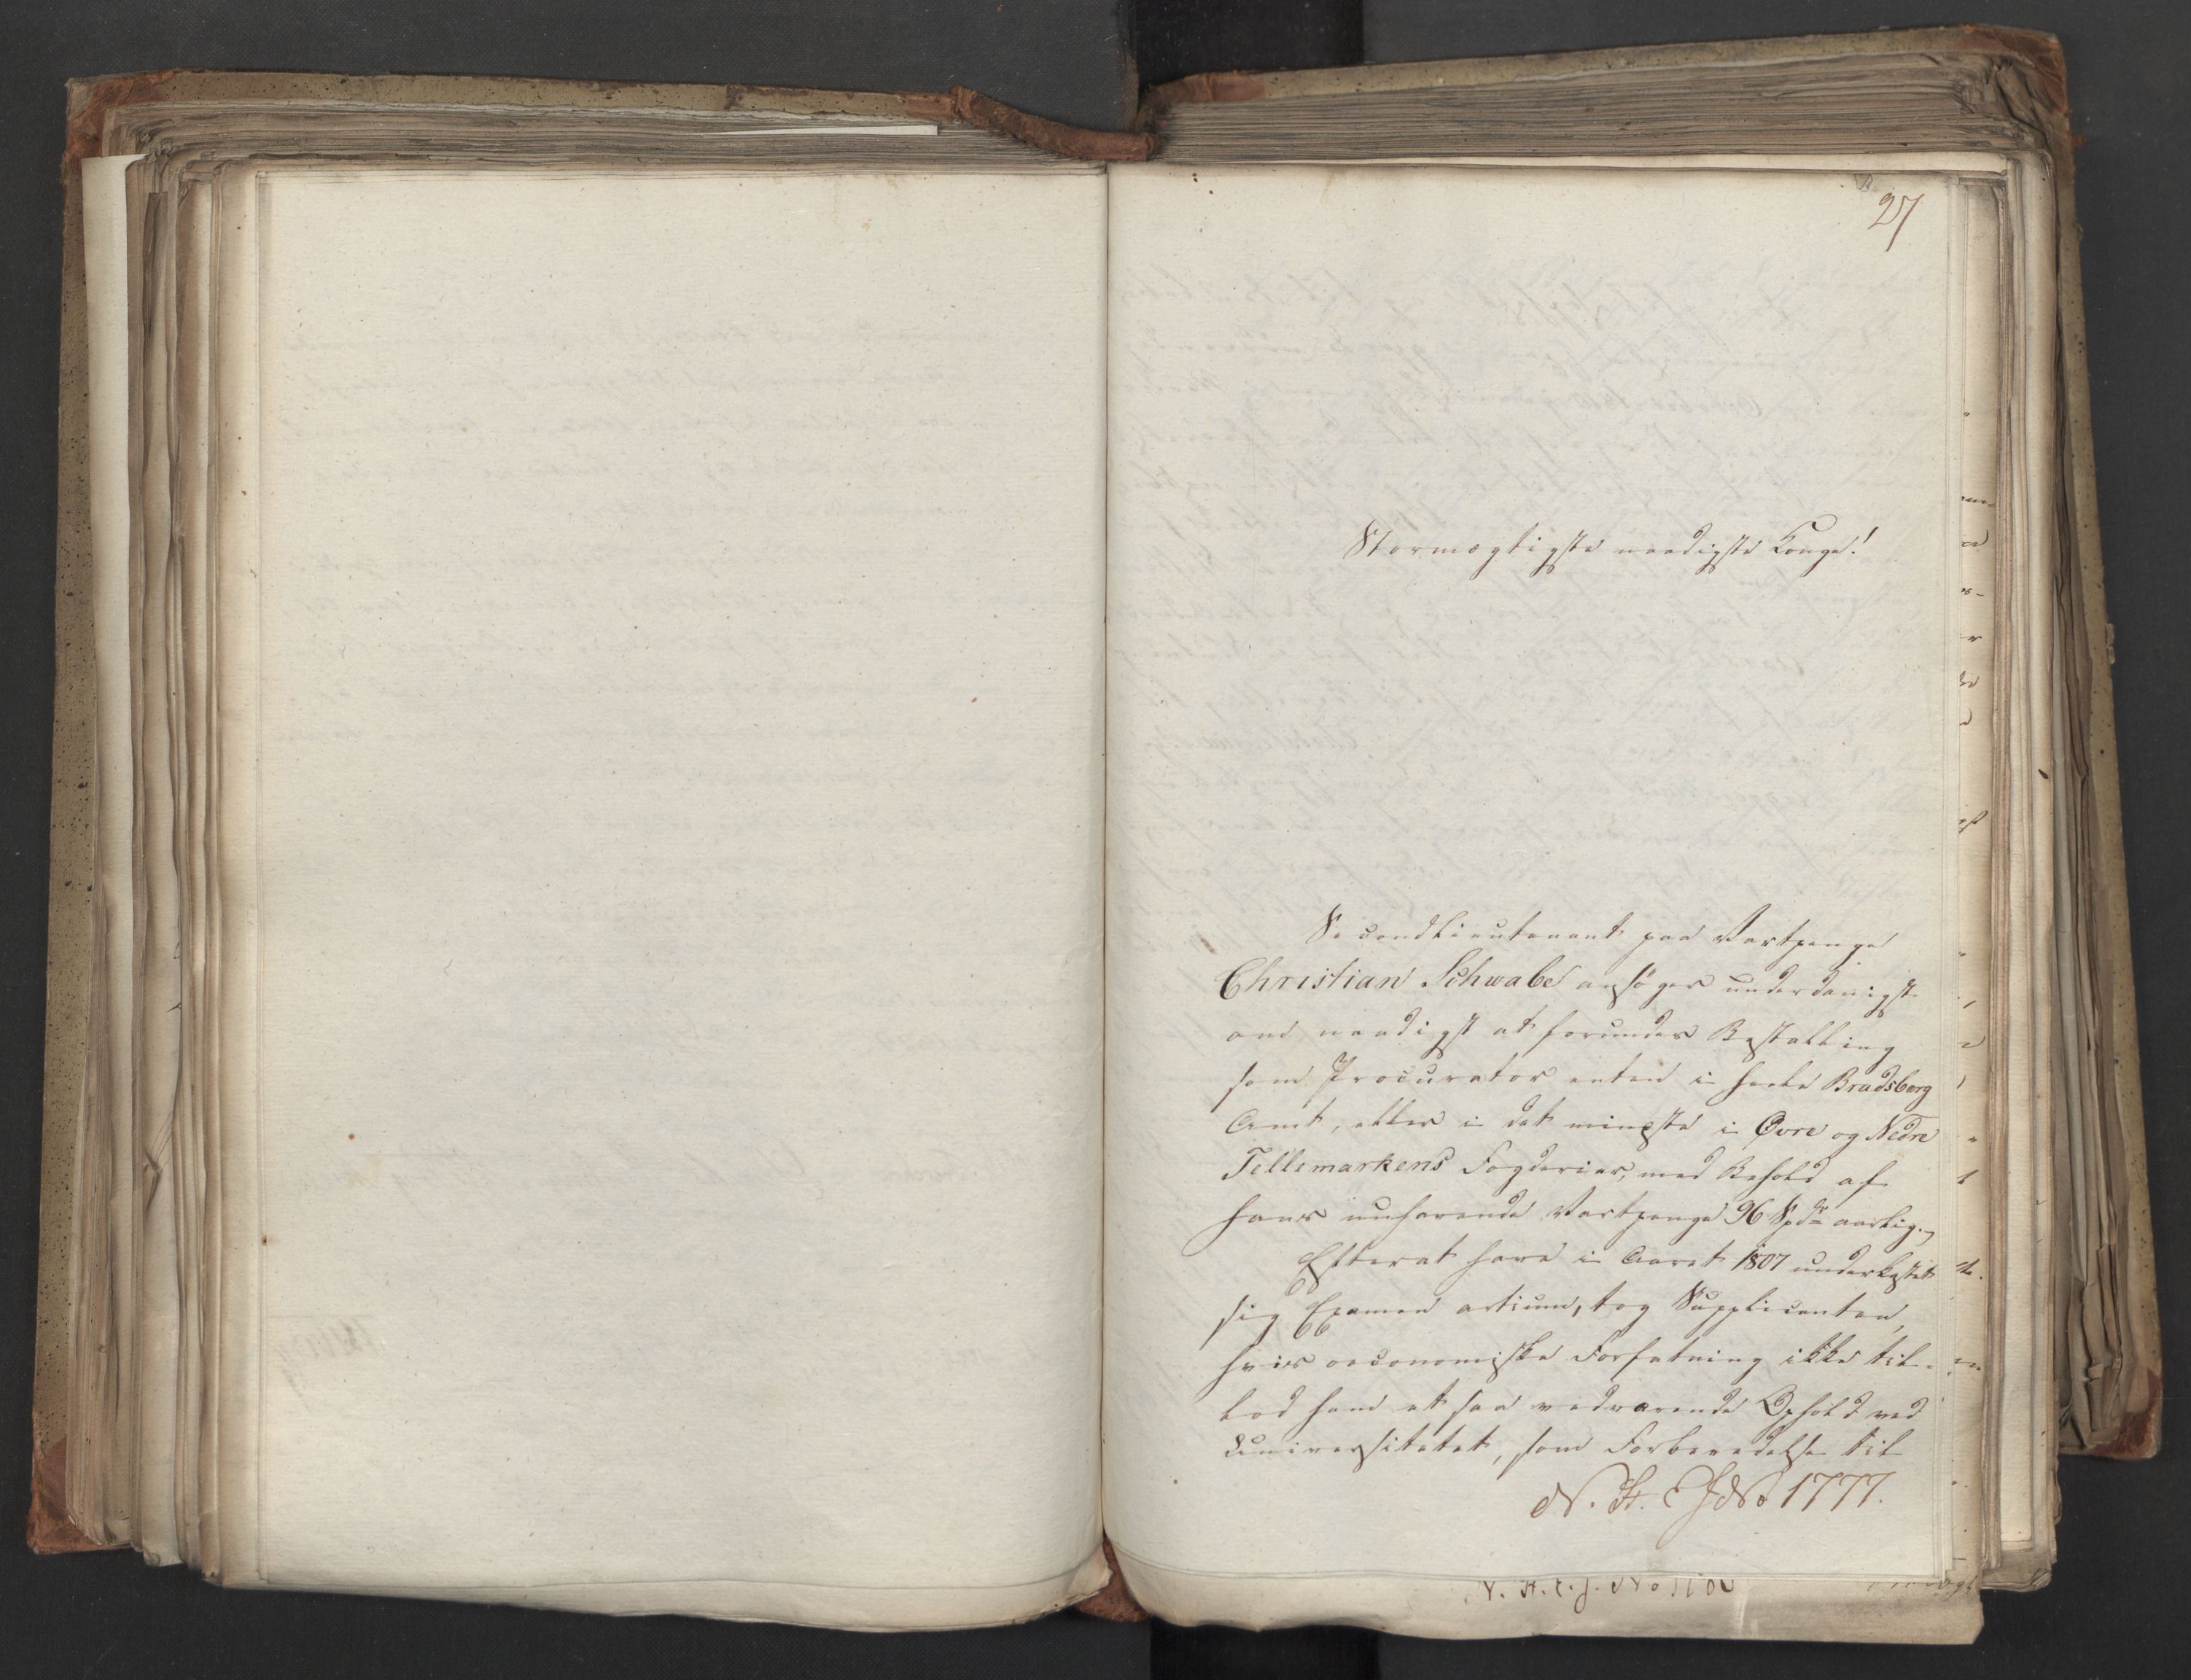 27
Stormægtigste naadigste Konge!
Secondlieutenant paa Vartpenge
Christian Schwabe ansøger underdanigst
om naadigst at forundes Bestalling
som Procurator enten i hele Bradsberg
Amt, eller i det mindste i Øvre og Nedre
Tellemarkens Fogderier, med Behold af
hans nuhavende Vartpenge 96 Spdr aarlig.
Efterat have i Aaret 1807 underkastet
sig Examen artium, tog Supplicanten,
hvis oeconomiske Forfatning ikke til-
lod ham et saa vedvarende Ophold ved
Universitetet, som Forberedelse til
N. H. E J No 1777.
N. H. E. J. No